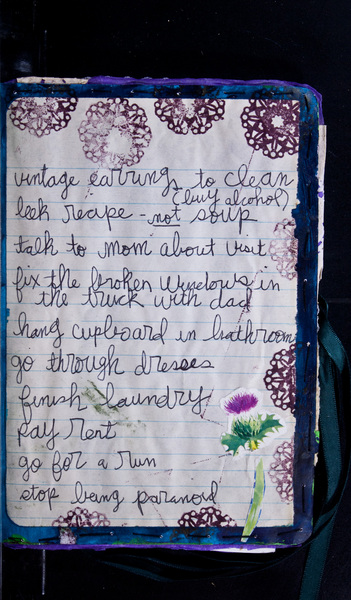 vintage earrings to clean
(buy alcohol)
leek recipe - not soup
talk to mom about visit
fix the broken windows in
the truck with dad
hang cupboard in bathroom
go through dresses
finish laundry
pay rent
go for a run
stop being paranoid